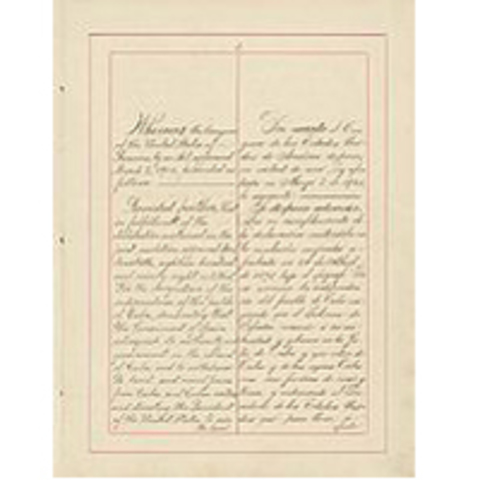 Whereas the Congress
of the United States of
America, by an Act approved
March 2, 1901, provided as
follows
Provided further, That
in fulfillment of the
declaration contained in the
joint resolution approved
twentieth, eighteen hundred
and ninety eight entitled
"For the recognition of the
independence of the people
of Cuba, demanding that
the Government of Spain
relinquish its authority and
government in the island
of Cuba, and to withdraw
its land and naval forces
from Cuba and Cuban waters
and directing the President
of the United States to use
the land
Por cuanto el Con
greso de los Estados Uni
dos de América dispuso,
en virtud de una Ley apro
bada en Marzo 2 de 1901
lo siguiente
Se dispone además,
Que en cumplimiento de
la declaración contenida en
la resolución conjunta a
probada en de Abril
de 1898 bajo el
el reconocimiento de la independen
cia del pueblo de Cuba
que el Gobierno de
España renuncie a su au
toridad y gobierno en la Is
la de Cuba, y que retire de
Cuba y de las aguas Cuba
nas sus fuerzas de mar y
tierra, y ordenando al Pre
sidente de los Estados Uni
dos que para llevar a
efecto